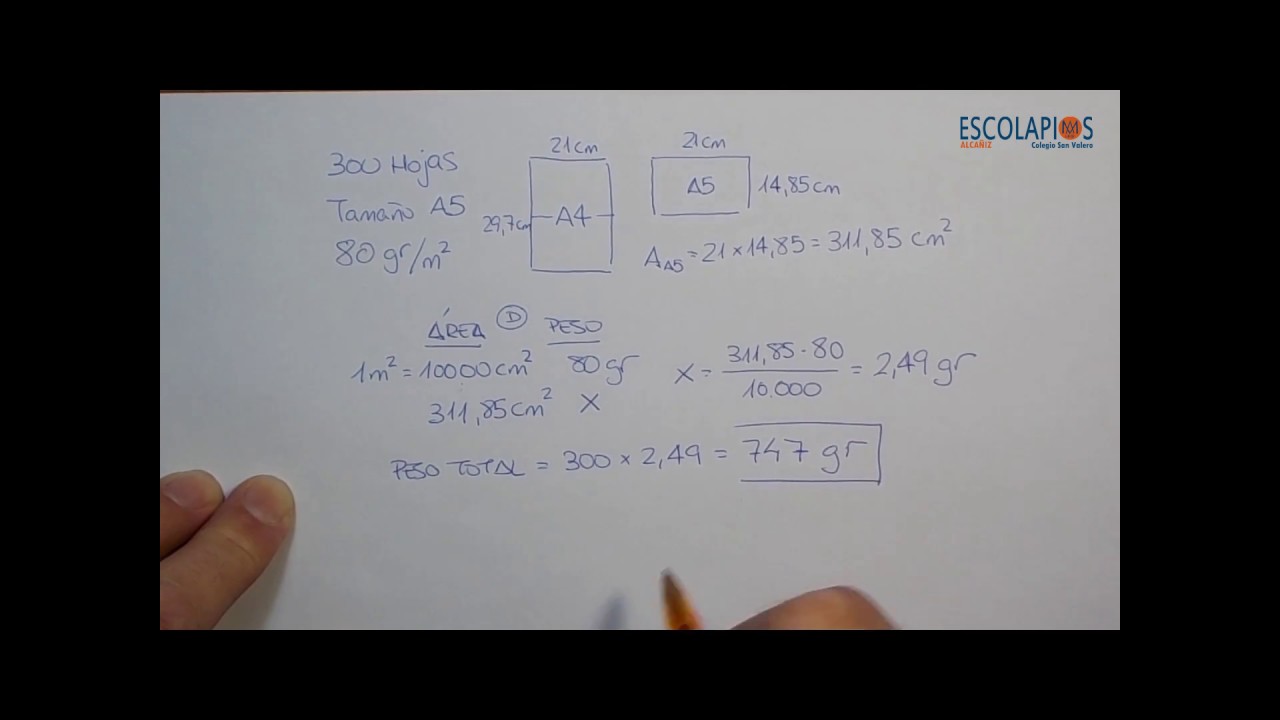 ESCOLAPIOS
ALCAÑIZ Colegio San Valero
300 Hojas
Tamaño A5
80 gr/m²
21cm
29,7cm
A4
21cm
A5
14,85cm
A_A5 = 21 × 14,85 = 311,85 cm²
ÁREA D PESO
1m² = 10000cm² 80gr
311,85cm² X
X = 311,85 · 80 / 10.000 = 2,49 gr
PESO TOTAL = 300 × 2,49 = 747 gr